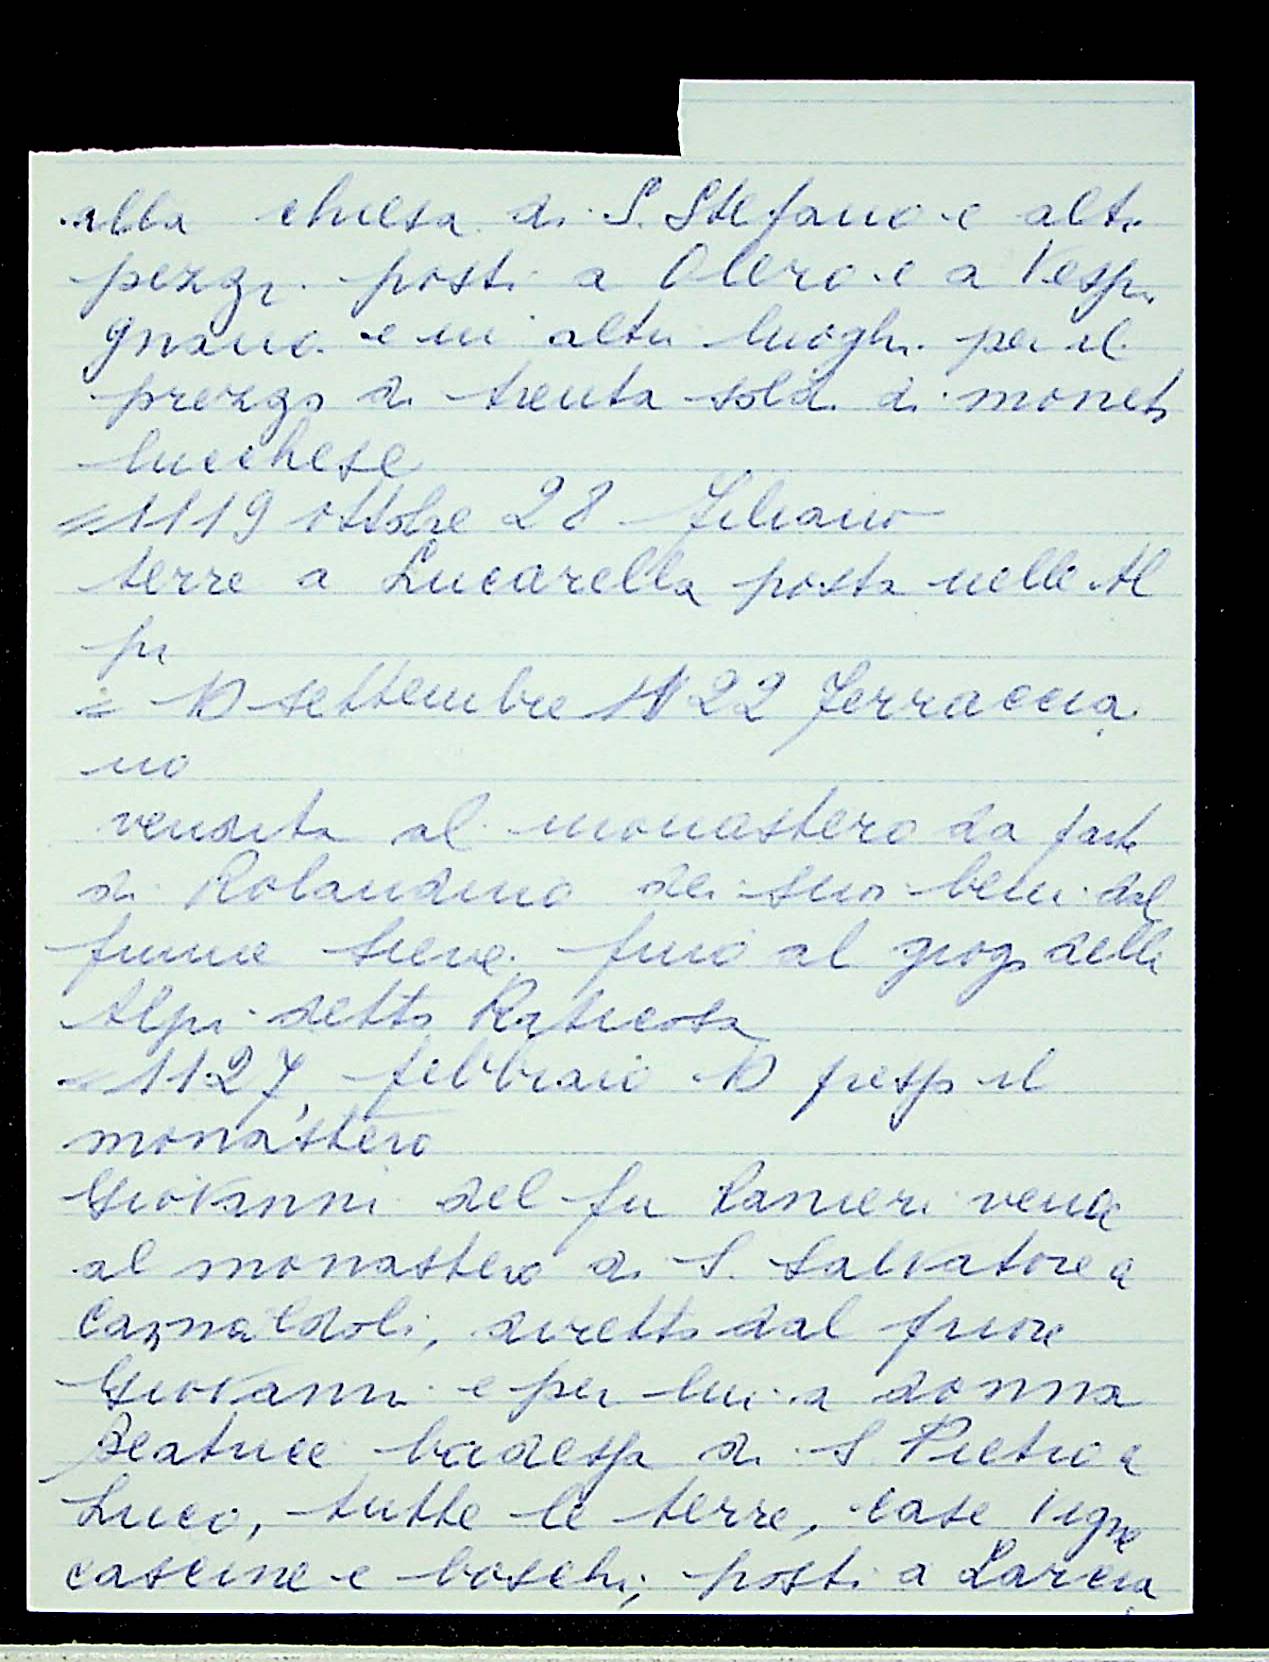 alla chiesa di S. Stefano e altri
pezzi posti a Olero e a Vespi
gnano e in altri luoghi per il
prezzo di trenta soldi di moneta
lucchese
=1119 ottobre 28
terre a Lucarella posta nelle Al
pi
= 10 settembre 1122 Ferraccia
no
vendita al monastero da parte
di Rolandino dei suoi beni dal
fiume Sieve fino al giogo delle
Alpi detto Raticosa
=1127, febbraio 10 presso il
monastero
Giovanni del fu Ranieri vende
al monastero di S. Salvatore a
Camaldoli, diretto dal priore
Giovanni e per lui a donna
Beatrice badessa di S. Pietro a
Luco, tutte le terre, case vigne
cascine e boschi, posti a Larcia